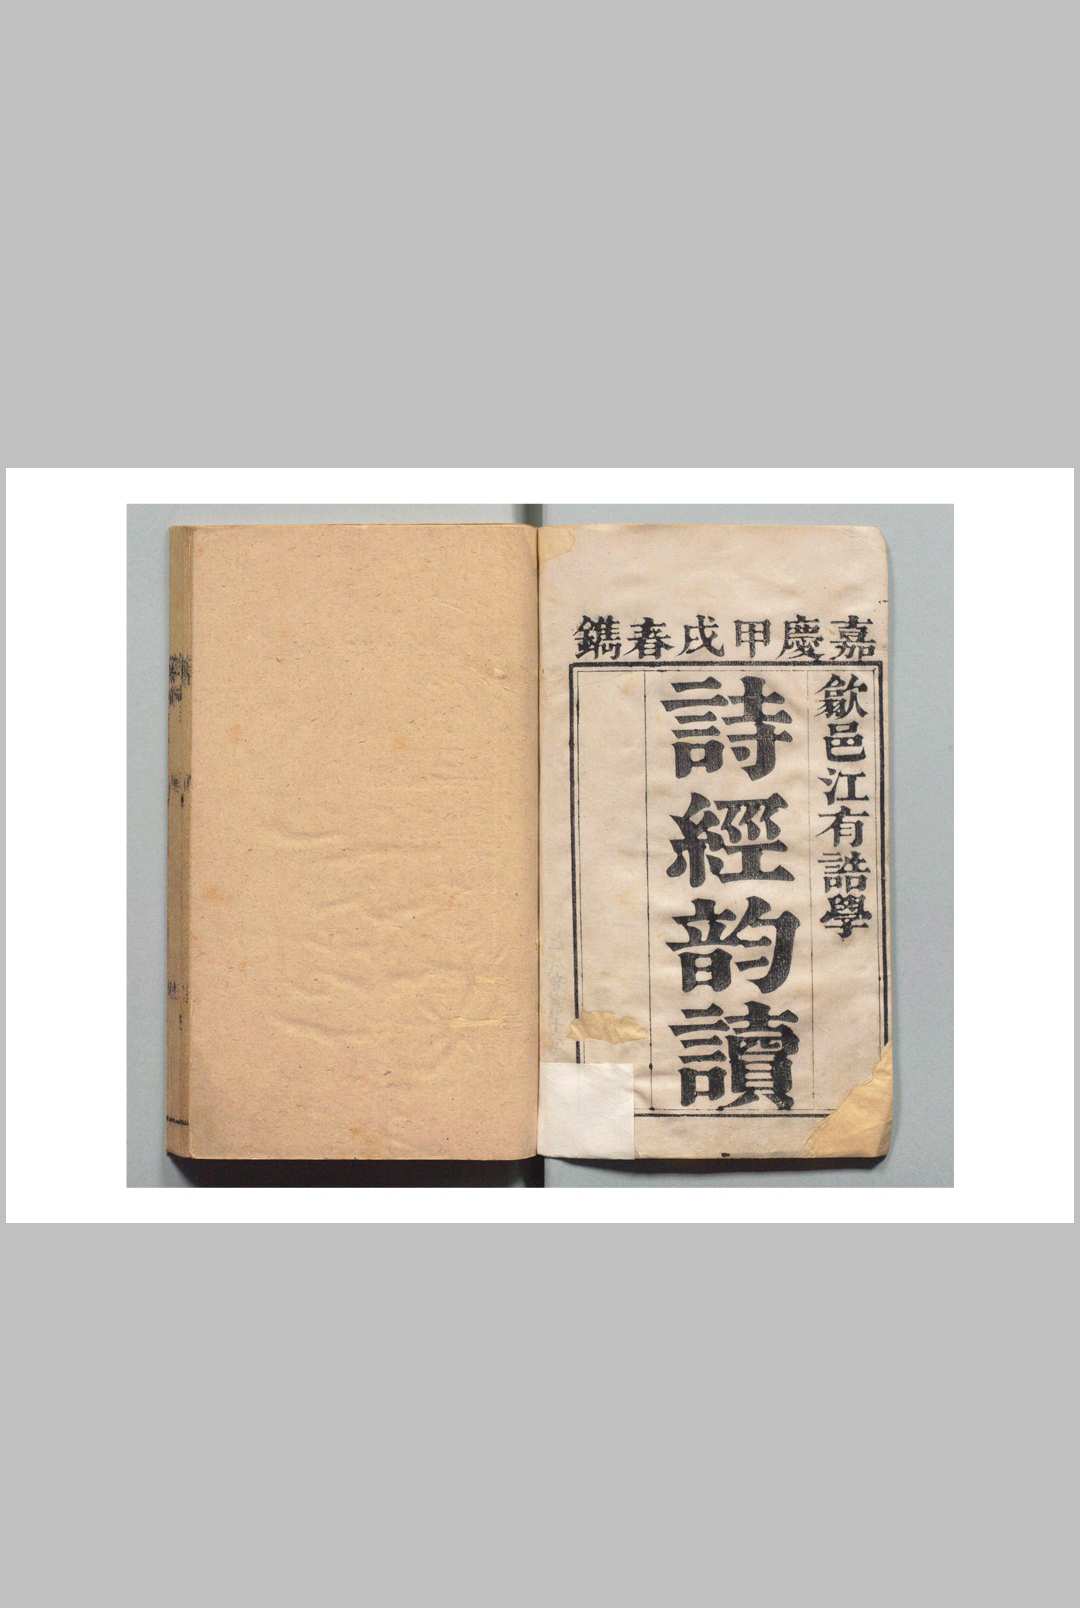 嘉慶甲戌春鐫
歙邑江有誥學
詩經韵讀